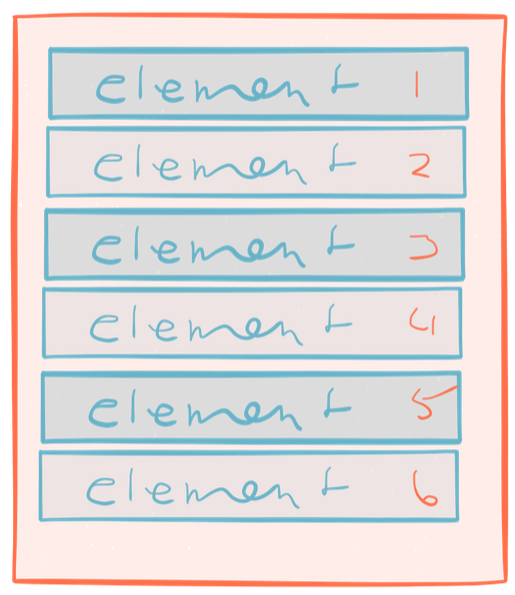 element 1
element 2
element 3
element 4
element 5
element 6